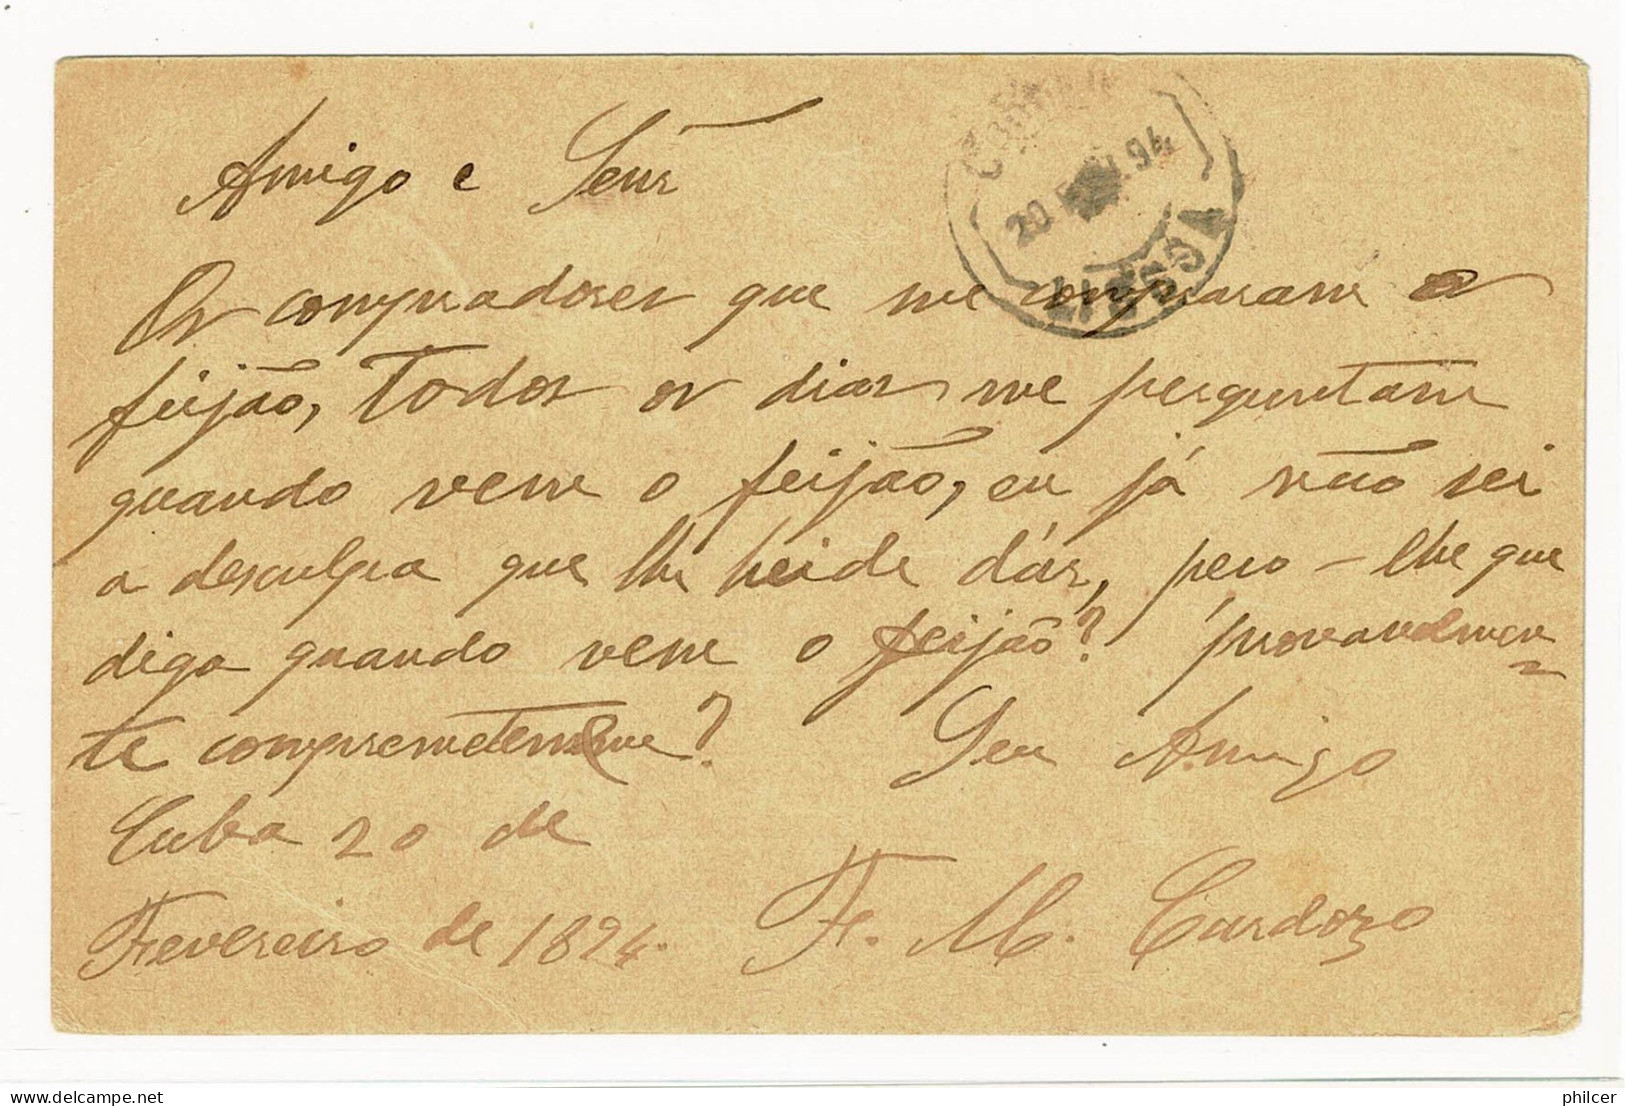 Amigo e Senr
CORREIO
20 FEV. 94
LISBOA
Os compradores que me compraram o
feijão, todos os dias me perguntam
quando vem o feijão, eu já não sei
a desculpa que lhe heide dár, peço-lhe que
diga quando vem o feijão? provavelmen=
te
Seu Amigo
Cuba 20 de
Fevereiro de 1894.
F. M. Cardozo
philcer